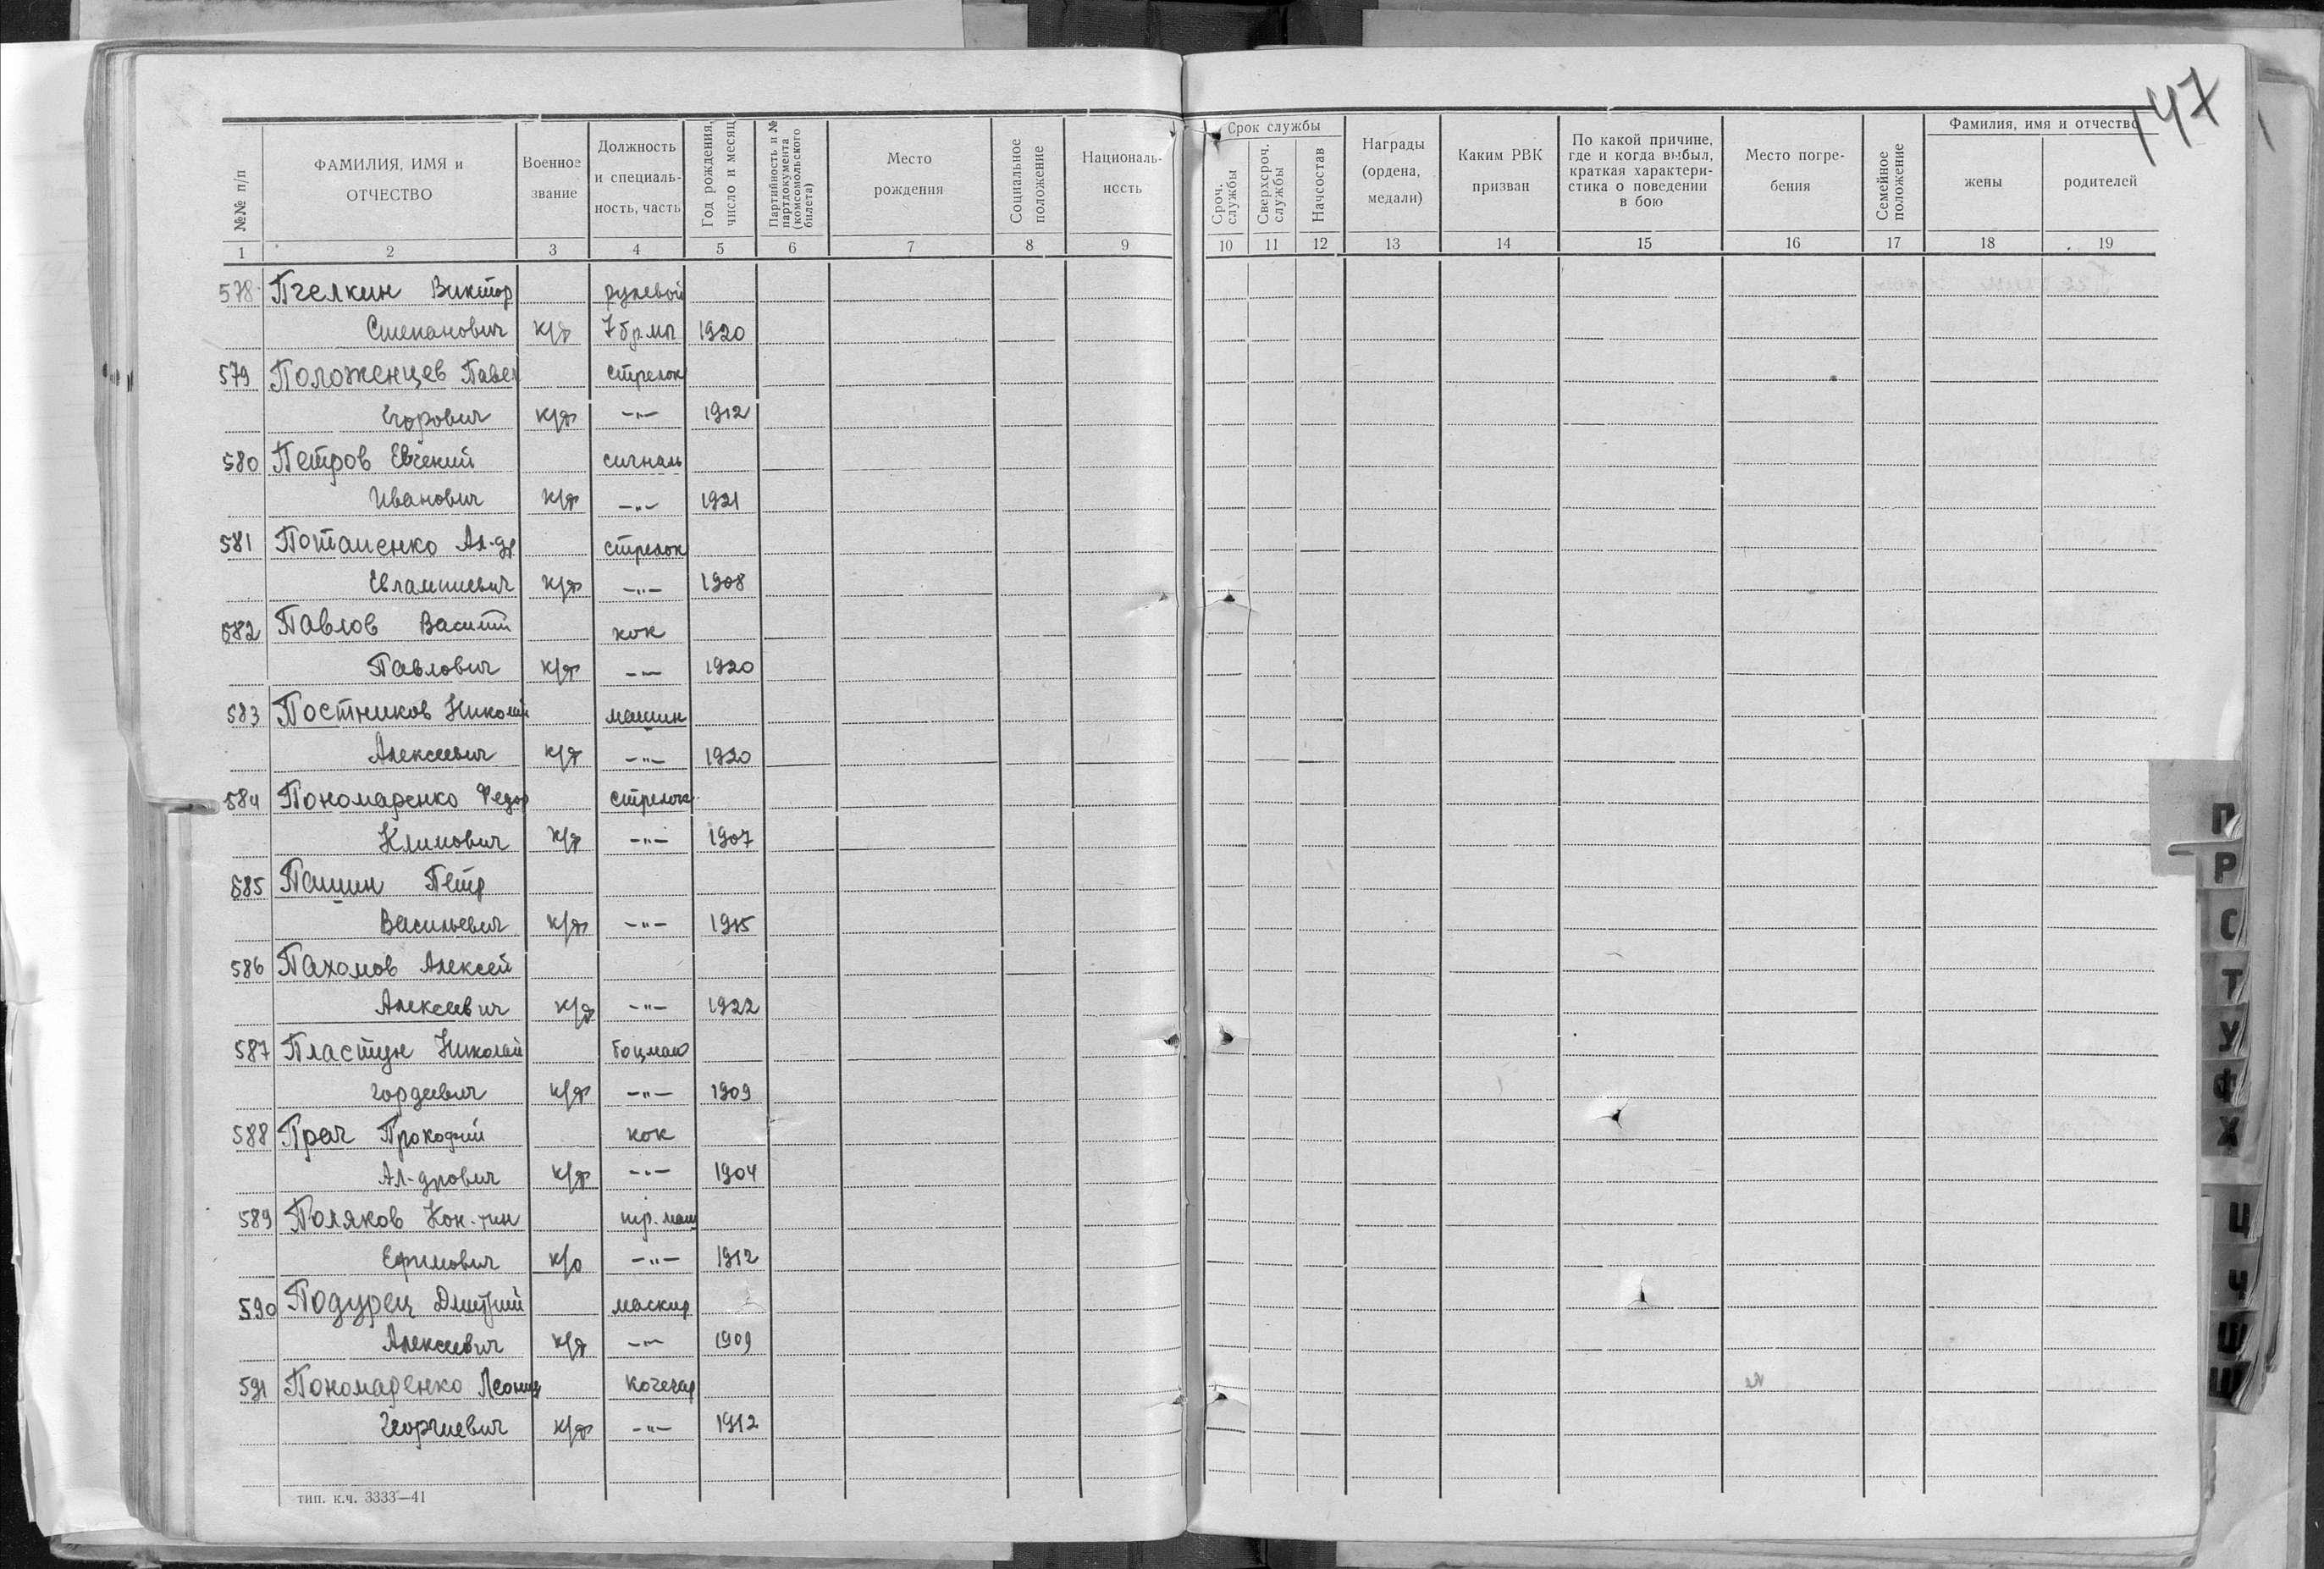 147
№№ п/п
ФАМИЛИЯ, ИМЯ и
ОТЧЕСТВО
Военное
звание
Должность
и специаль-
ность, часть
Год рождения,
число и месяц
Партийность и №
партдокумента
(комсомольского
билета)
Место
рождения
Социальное
положение
Националь-
ность
Срок службы
Сроч.
службы
Сверхсроч.
службы
Начсостав
Награды
(ордена,
медали)
Каким РВК
призван
По какой причине,
где и когда выбыл,
краткая характери-
стика о поведении
в бою
Место погре-
бения
Семейное
положение
Фамилия, имя и отчество
жены
родителей
1 2 3 4 5 6 7 8 9 10 11 12 13 14 15 16 17 18 19
578 Пчелкин Виктор рулевой
Степанович к/ф 7 бр.мп 1920
579 Положенцев Павел стрелок
Егорович к/ф -"- 1912
580 Петров Евгений сигналь
Иванович к/ф -"- 1921
581 Потапенко Ал-др стрелок
Евлампиевич к/ф -"- 1908
582 Павлов Василий кок
Павлович к/ф -"- 1920
583 Постников Николай машин
Алексеевич к/ф -"- 1920
584 Пономаренко Федор стрелок
Климович к/ф -"- 1907
585 Пашин Петр
Васильевич к/ф -"- 1915
586 Пахомов Алексей
Алексеевич к/ф -"- 1922
587 Пластун Николай боцман
Гордеевич к/ф -"- 1909
588 Прач Прокофий кок
Ал-дрович к/ф -"- 1904
589 Поляков Кон-тин
Ефимович к/о -"- 1912
590 Подурец Дмитрий маскир
Алексеевич к/ф -"- 1909
591 Пономаренко Леонид кочегар
Георгиевич к/ф -"- 1912
тип. к.ч. 3333—41
П
Р
С
Т
У
Ф
Х
Ц
Ч
Ш
Щ